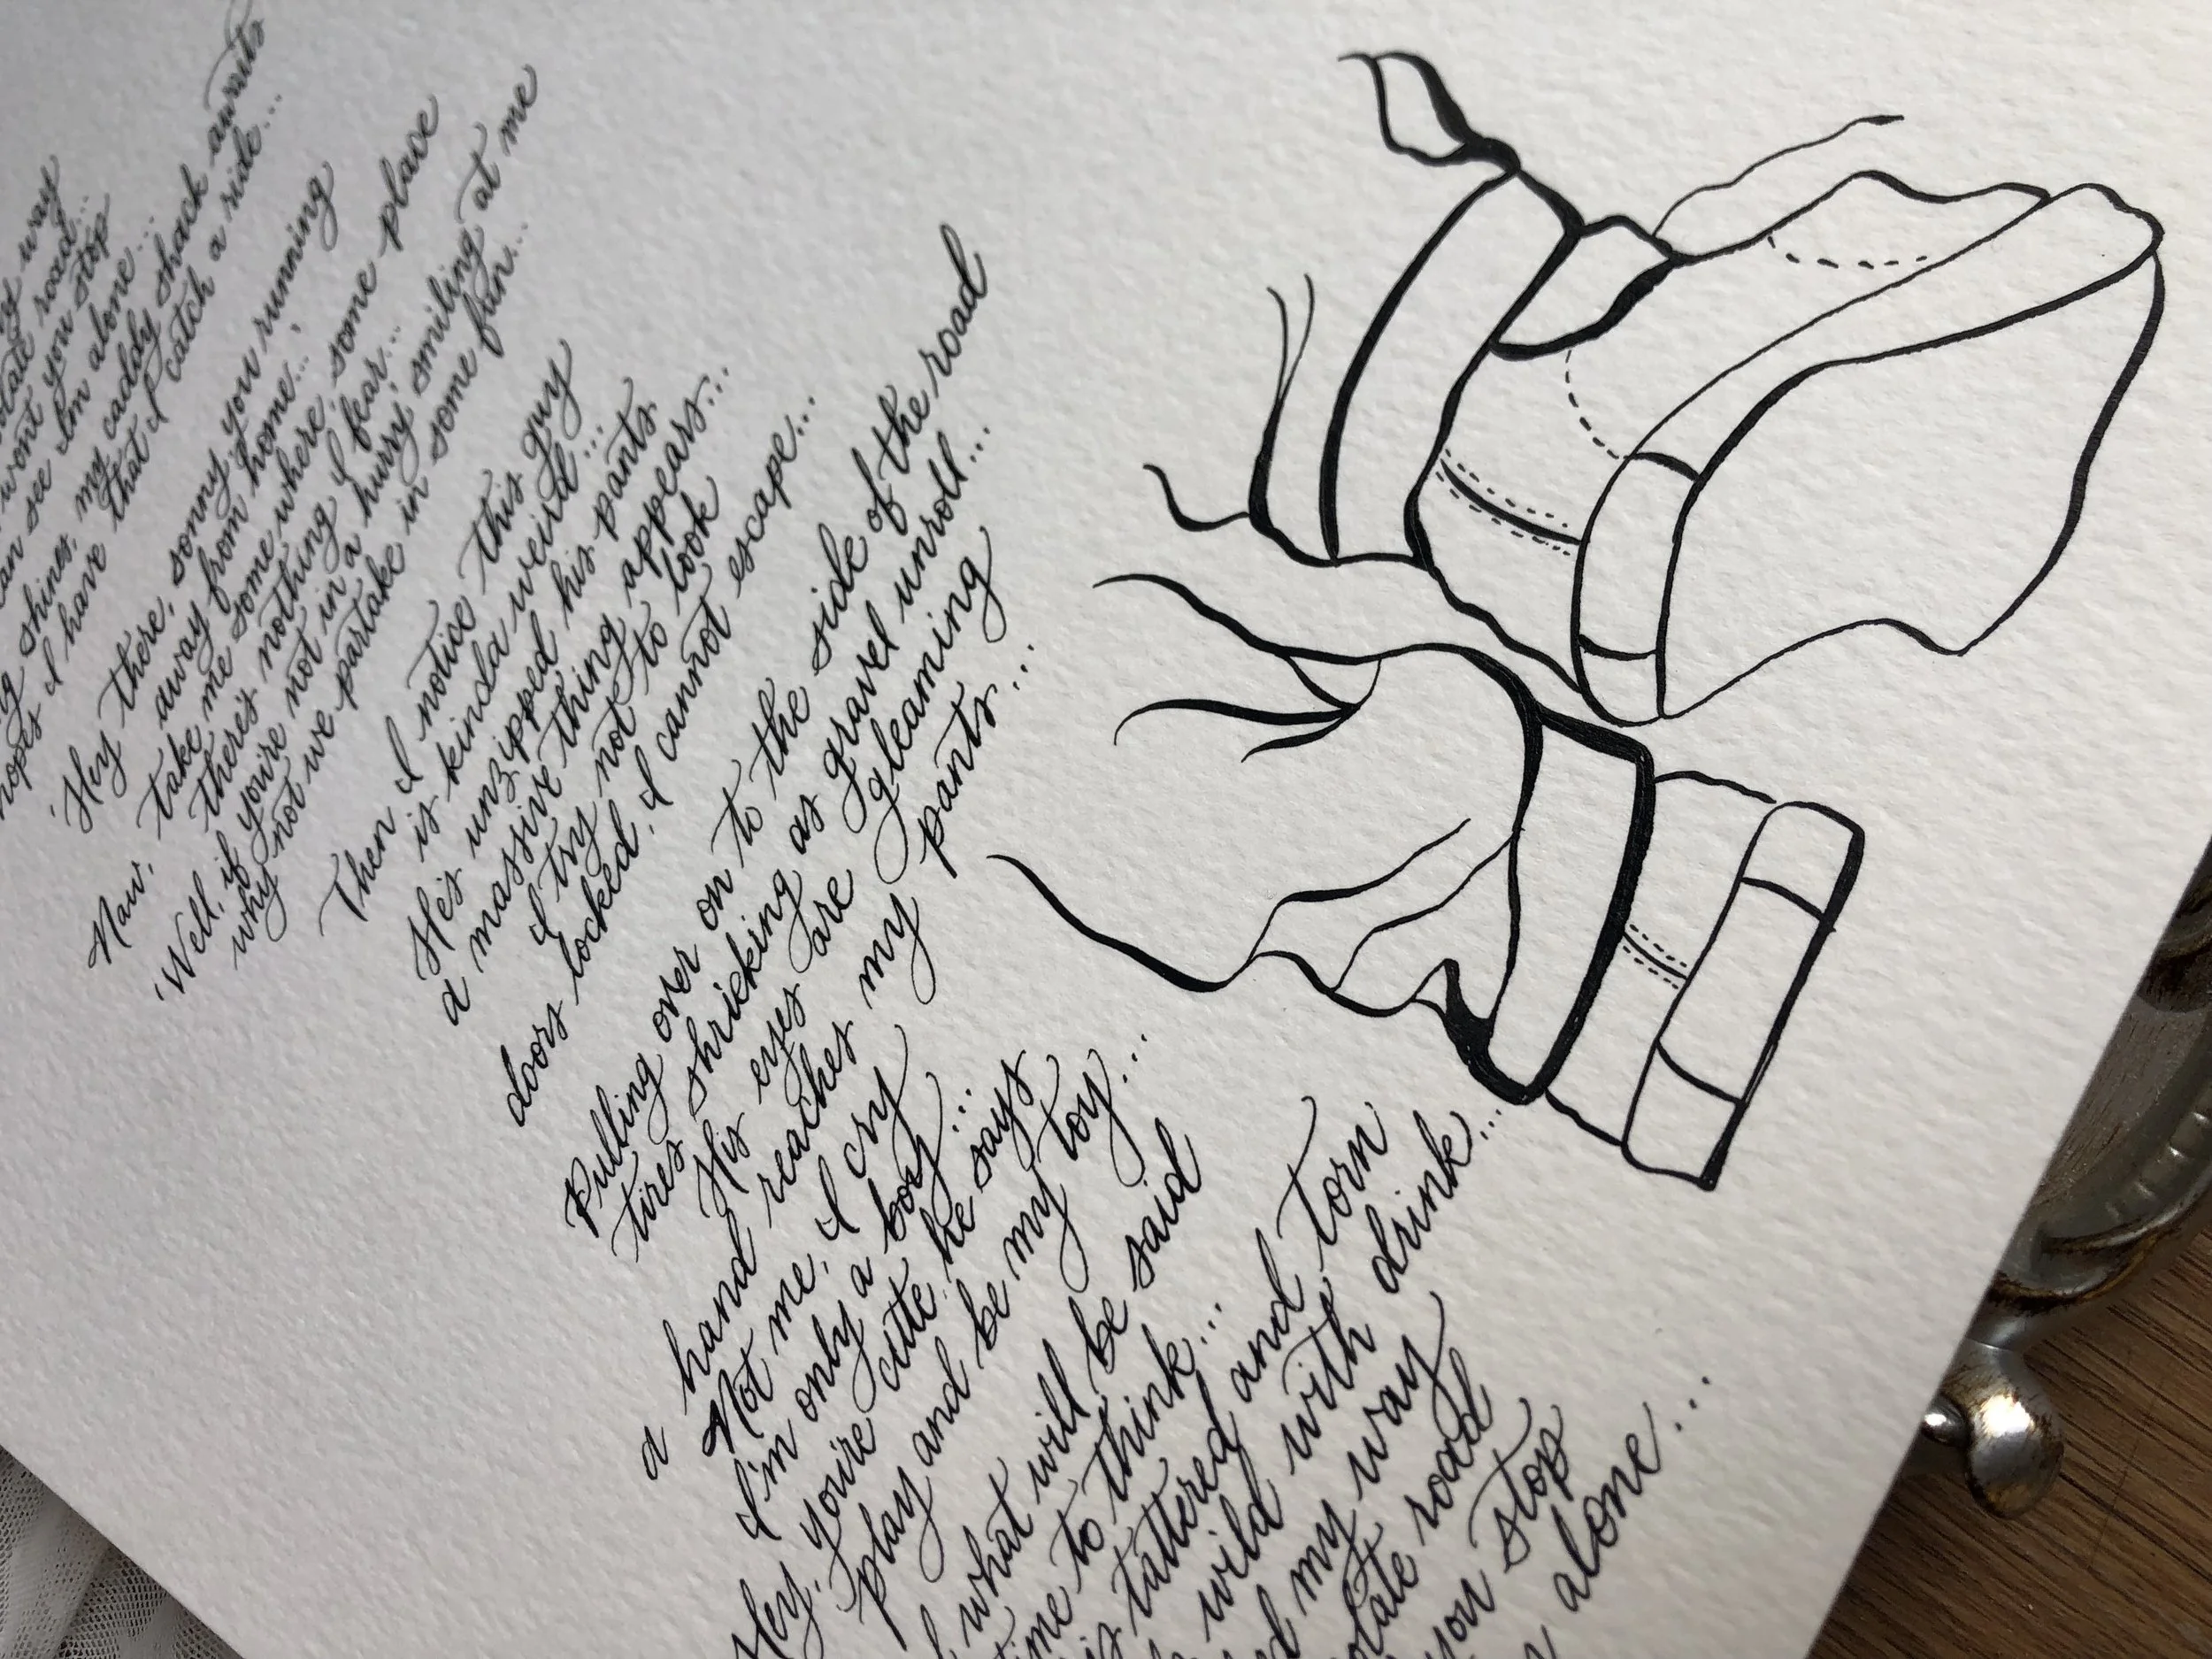 way
road...
won't you stop
can see I'm alone...
shines, my caddy shack awaits
hopes I have that I catch a ride...
'Hey there, sonny you running
away from home...'
Naw, take me some where, some place
there's nothing I fear...
'Well, if you're not in a hurry, smiling at me
why not we partake in some fun...
Then I notice this guy
is kinda weird...
He's unzipped his pants.
a massive thing appears...
I try not to look
doors locked, I cannot escape...
Pulling over on to the side of the road
tires shrieking as gravel unroll...
His eyes are gleaming
a hand reaches my pants...
Not me, I cry
I'm only a boy...
Hey, you're cute he says
play and be my toy...
what will be said
time to think...
is tattered and torn
wild with drink...
my way
road
you stop
alone...